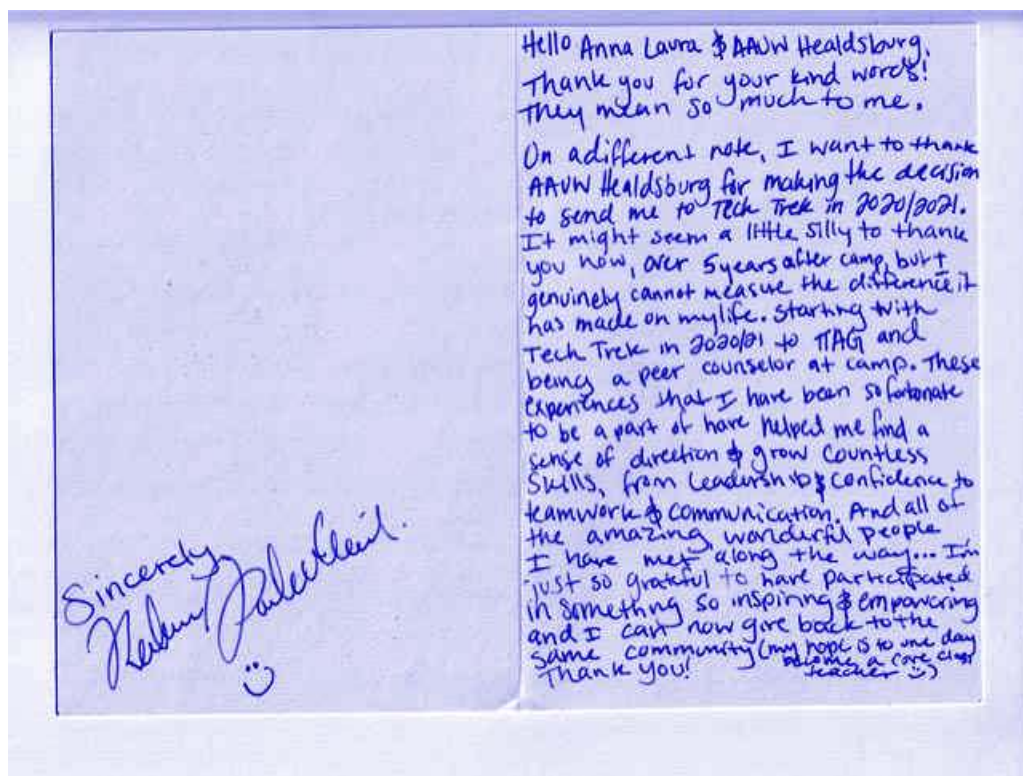 Hello Anna Laura & AAUW Healdsburg.
Thank you for your kind words!
They mean so much to me.
On a different note, I want to thank
AAUW Healdsburg for making the decision
to send me to Tech Trek in 2020/2021.
It might seem a little silly to thank
you now, over 5 years after camp, but I
genuinely cannot measure the difference it
has made on my life. Starting with
Tech Trek in 2020/21 to TTAG and
being a peer counselor at camp. These
experiences that I have been so fortunate
to be a part of have helped me find a
sense of direction & grow countless
skills, from leadership & confidence to
teamwork & communication. And all of
the amazing, wonderful people
I have met along the way... I'm
just so grateful to have participated
in something so inspiring & empowering
and I can now give back to the
same community (my hope is to one day
become a core class
Thank you! teacher :)
Sincerely